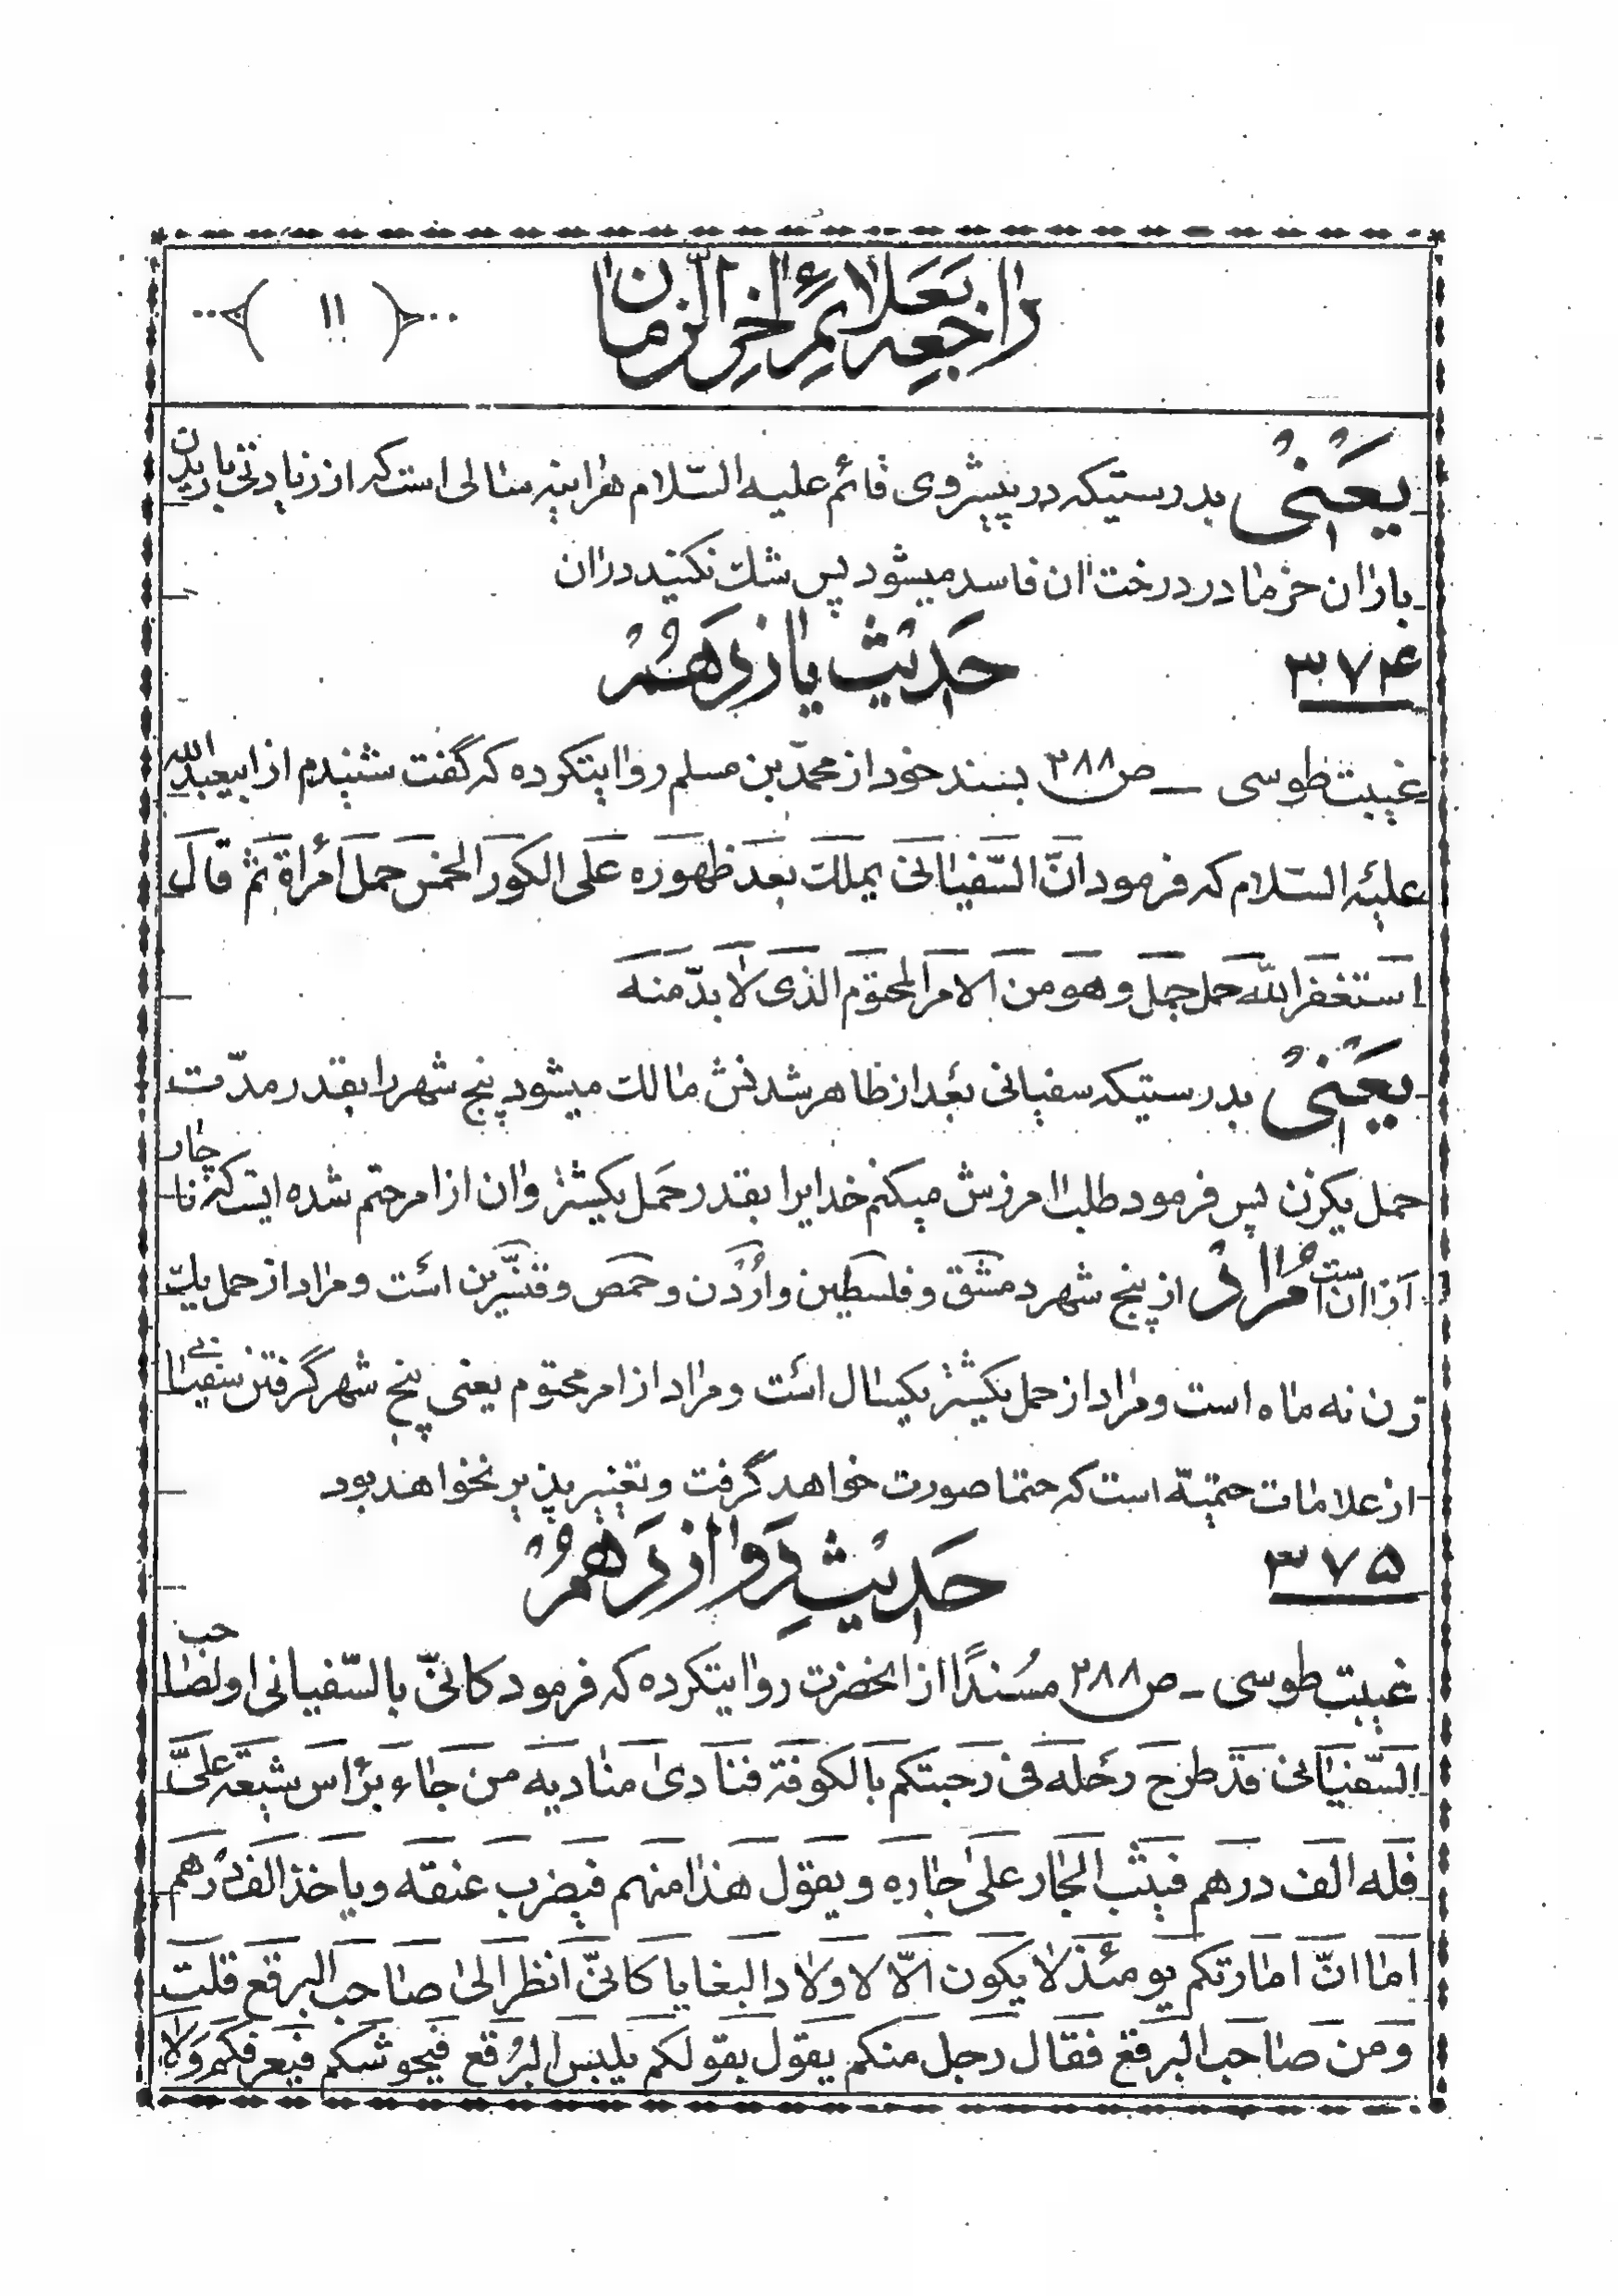 راجعه بعلائم اخر الزمان
( ۱۱ )
یعنی بدرستیکه در پیشروی قائم علیه السّلام هراینه سالی است که از زیادتی باریدن
باران خرما در درخت ان فاسد میشود پس شک نکنید دران
۳۷۴
حدیث یازدهم
غیبت طوسی ــ ص۲۸۸ بسند خود از محمّد بن مسلم روایتکرده که گفت شنیدم از ابیعبدالله
علیه السّلام که فرمود انّ السّفیانی یملک بعد ظهوره علی الکور الخمس حمل امرأة ثمّ قال
استغفر الله حمل جمل و هو من الامر المحتوم الذی لا بدّ منه
یعنی بدرستیکه سفیانی بعد از ظاهر شدنش مالک میشود پنج شهر را بقدر مدّت
حمل یکزن پس فرمود طلب امرزش میکنم خدایرا بقدر حمل یکشتر و ان از امر حتم شده ایست که ناچار
از ان است مراد از پنج شهر دمشق و فلسطین و اردُن و حمص و قنسّرین است و مراد از حمل یک
زن نه ماه است و مراد از حمل یکشتر یکسال است و مراد از امر محتوم یعنی پنج شهر گرفتن سفیانی
از علامات حتمیّه است که حتما صورت خواهد گرفت و تغییر پذیر نخواهد بود
۳۷۵
حدیث دوازدهم
غیبت طوسی ــ ص۲۸۸ مسُندًا از انحضرت روایتکرده که فرمود کانّی بالسّفیانی او لصاحب
السّفیانی قد طرح رحله فی رحبتکم بالکوفة فنادی منادیه من جاء برأس شیعة علیّ
فله الف درهم فیثب الجار علی جاره و یقول هذا منهم فیضرب عنقه و یاخذ الف درهم
اما انّ امارتکم یومئذ لا یکون الّا لاولاد البغایا کانّی انظر الی صاحب البرقع قلت
و من صاحب البرقع فقال رجل منکم یقول بقولکم یلبس البرُقع فیحوشکم فیعرفکم ولا